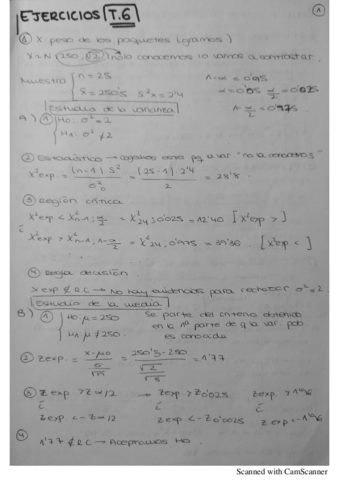 EJERCICIOS T.6
①
① X: peso de los paquetes (gramos)
X ~ N (250, √2) no lo conocemos lo vamos a contrastar.
Muestra { n = 25
x̄ = 250'5 S²x = 2'4
1-α = 0'95
α = 0'05 α/2 = 0'025
1-α/2 = 0'975
Estudio de la varianza
A) ① { H0: σ² = 2
H1: σ² ≠ 2
② Estadístico →
X²exp = (n-1)·S² / σ²0 = (25-1)·2'4 / 2 = 28'8
③ Región crítica
X²exp < X²n-1; α/2 = X²24; 0'025 = 12'40 [X²exp >]
ó
X²exp > X²n-1; 1-α/2 = X²24, 0'975 = 39'36 [X²exp <]
④ Regla decisión
Xexp ∉ RC → No hay evidencias para rechazar σ² = 2
Estudio de la media
B) ① { H0: μ = 250
H1: μ ≠ 250
Se parte del criterio obtenido
en la 1ª parte de q la var. pob
es conocida
② Zexp = x-μ0 / σ/√n = 250'5-250 / √2/√25 = 1'77
③ Zexp > Zα/2 → Zexp > Z0'025 Zexp > 1'96
ó ó ó
Zexp < -Zα/2 Zexp < -Z0'025 Zexp < -1'96
④ 1'77 ∉ RC → Aceptamos H0
Scanned with CamScanner